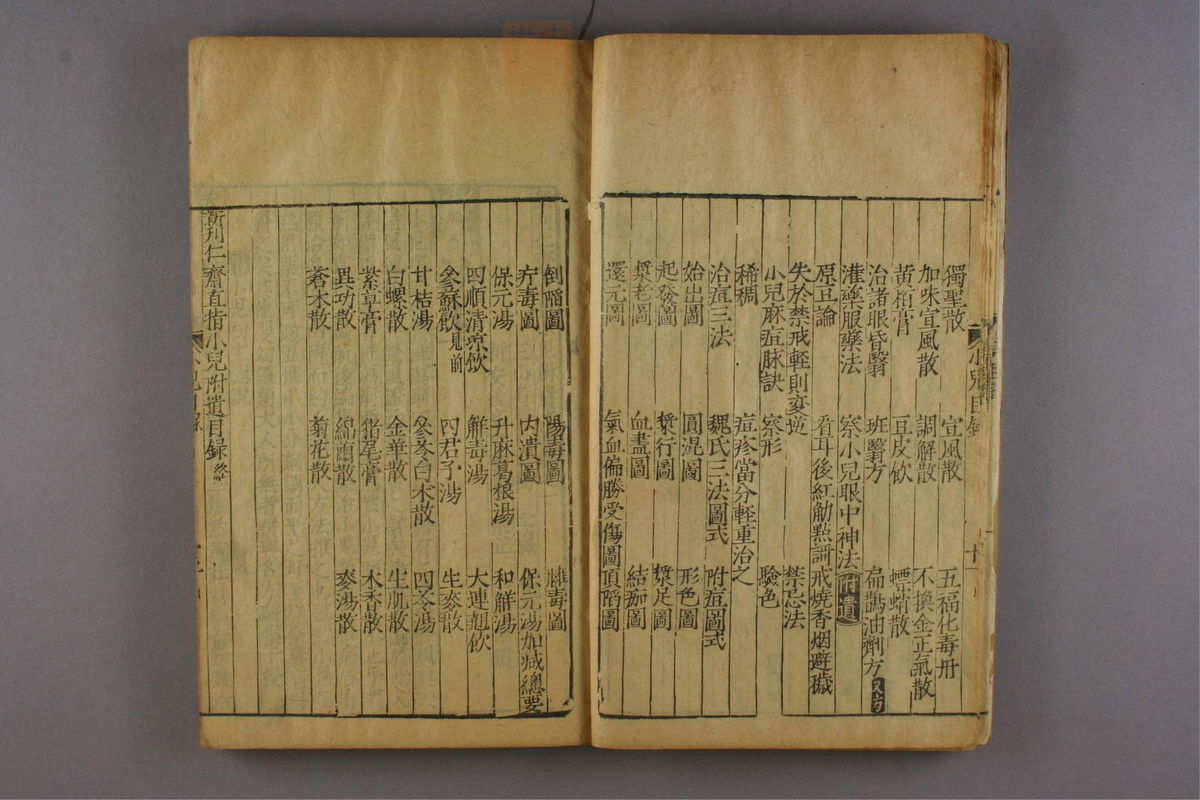 獨聖散 宣風散 五福化毒丹
加味宣風散 調解散 不換金正氣散
黄栢膏 豆皮飲 螵蛸散
治諸眼昏翳 班翳方 扁鵲油劑方 又方
灌藥服藥法 察小兒眼中神法 附遺
原豆論 看耳後紅觔㸃訶 戒燒香烟避穢
失於禁戒輕則変逆 禁忌法
小兒麻痘脉訣 察形 驗色
稀稠 痘疹當分輕重治之
治痘三法 魏氏三法圖式 附痘圖式
始出圖 圓混圖 形色圖
起發圖 漿行圖 漿足圖
漿老圖 血盡圖 結痂圖
還元圖 氣血偏勝受傷圖 頂陷圖
小兒目録 十一
倒陷圖 陽毒圖 癰毒圖
疔毒圖 内潰圖 保元湯加減總要
保元湯 升麻葛根湯 和解湯
四順清凉飲 解毒湯 大連翹飲
參蘇飲見前 四君子湯 生麥散
甘桔湯 參苓白术散 四苓湯
白螺散 金華散 生肌散
紫草膏 猪尾膏 木香散
異功散 綿繭散 麥湯散
蒼术散 菊花散
新刋仁齋直指小兒附遺目録 終